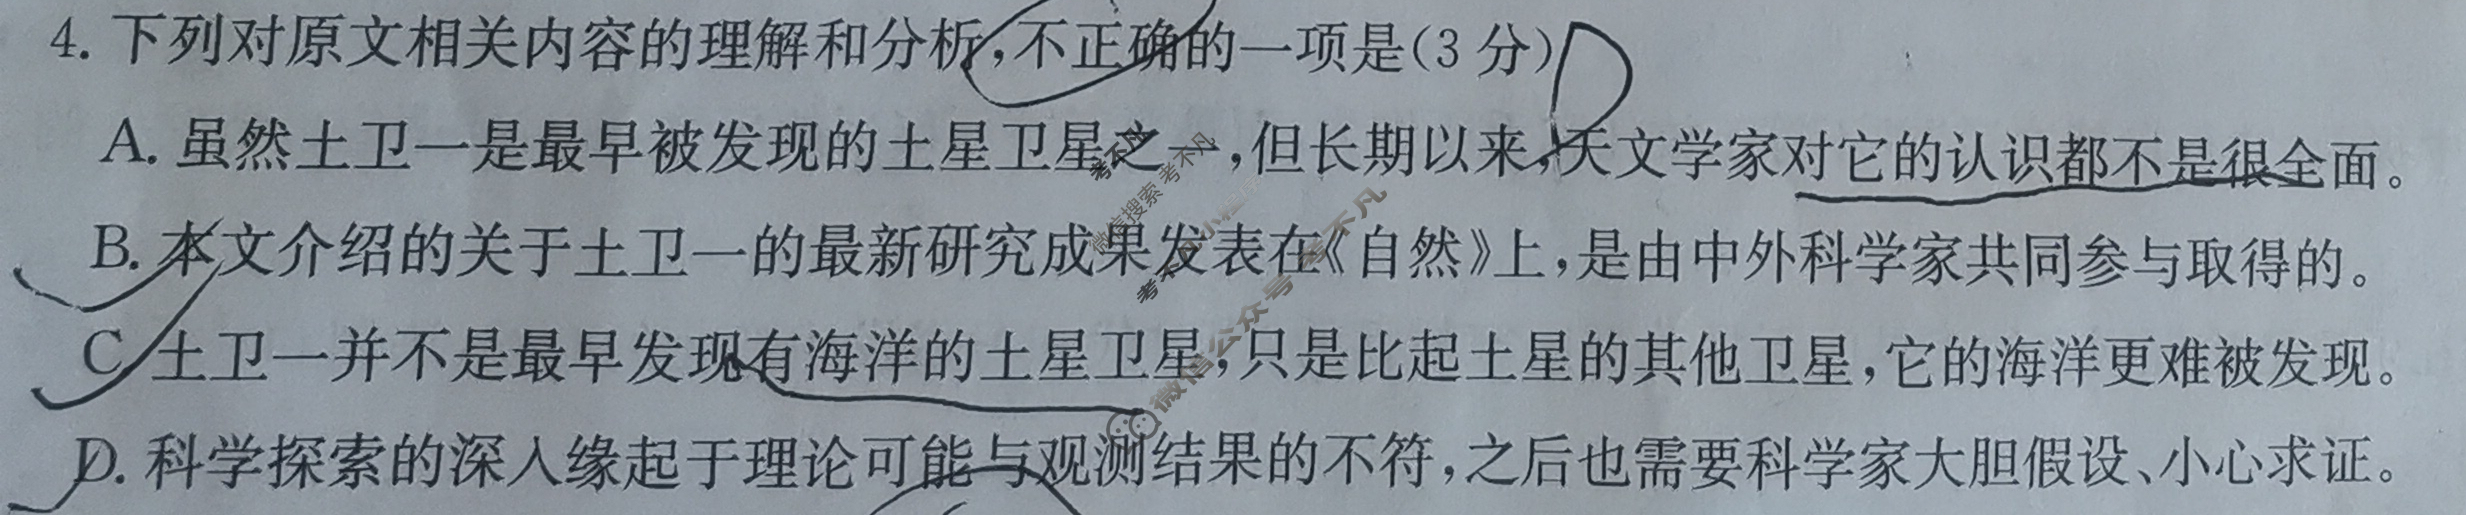 4. 下列对原文相关内容的理解和分析,不正确的一项是(3 分) D
A. 虽然土卫一是最早被发现的土星卫星之一,但长期以来,天文学家对它的认识都不是很全面。
B. 本文介绍的关于土卫一的最新研究成果发表在《自然》上,是由中外科学家共同参与取得的。
C 土卫一并不是最早发现有海洋的土星卫星,只是比起土星的其他卫星,它的海洋更难被发现。
D. 科学探索的深入缘起于理论可能与观测结果的不符,之后也需要科学家大胆假设、小心求证。
考不凡
微信搜索 考不凡
微信公众号 考不凡